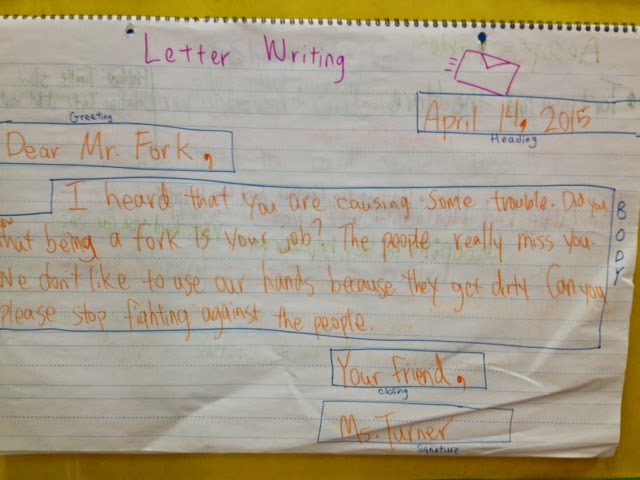 Letter Writing
April 14, 2015
Heading
Greeting
Dear Mr. Fork,
I heard that you are causing some trouble. Did you
that being a fork is your job? The people really miss you.
We don't like to use our hands because they get dirty Can you
please stop fighting against the people.
BODY
Your friend,
closing
Ms. Turner
Signature